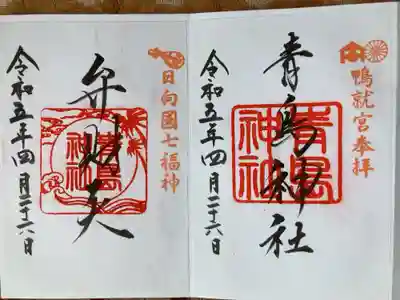 鴨就宮奉拝
青島神社
青島
神社
令和五年四月二十六日
日向國七福神
弁財天
青島
神社
令和五年四月二十六日